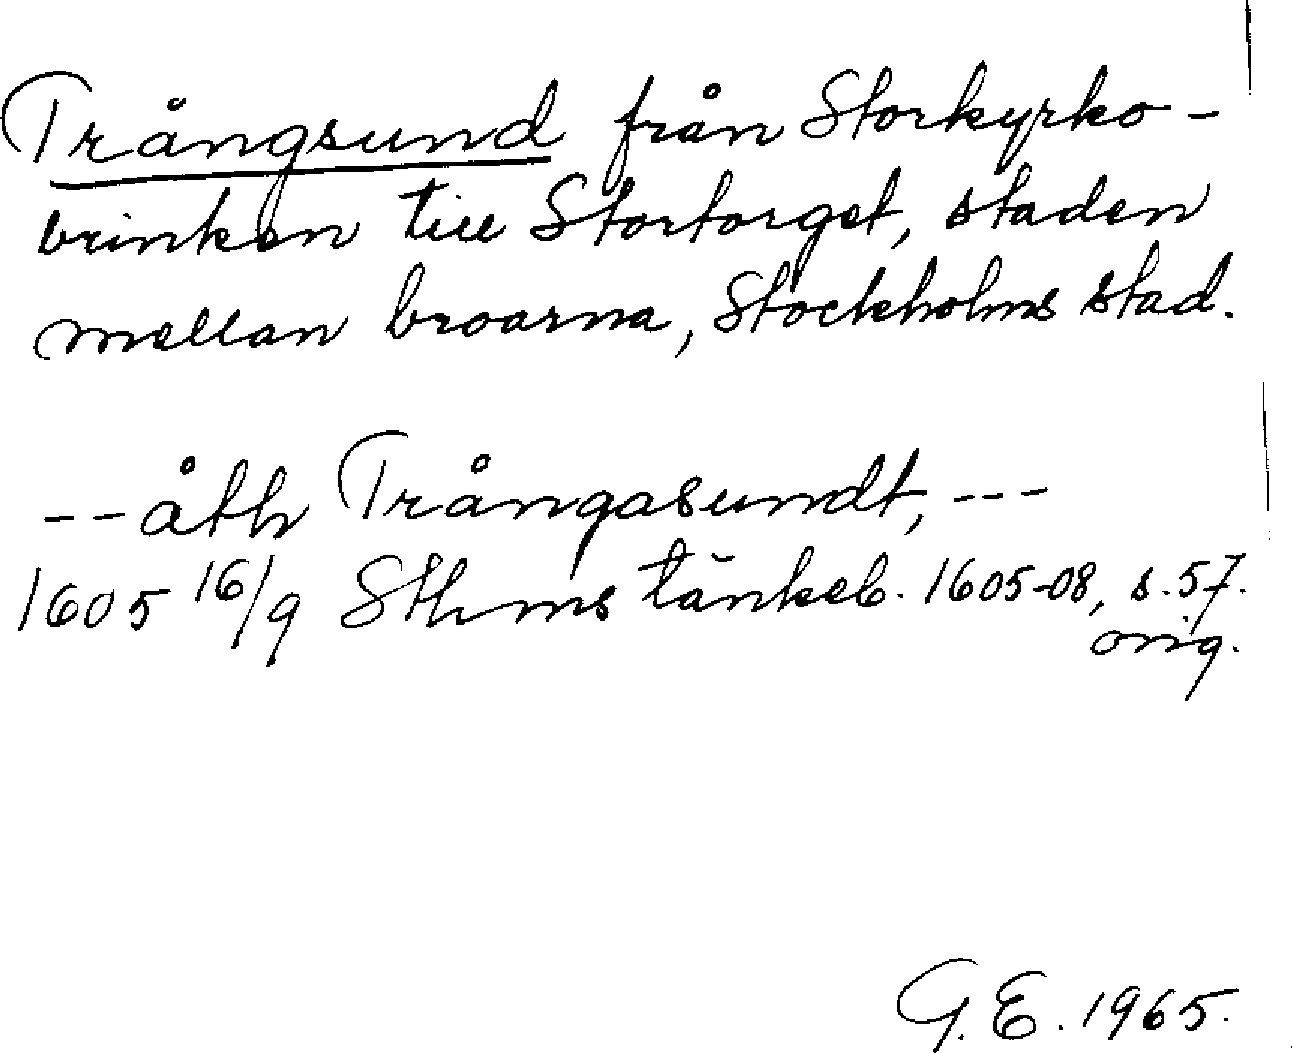 Trångsund från Storkyrko-
brinken till Stortorget, staden
mellan broarna, Stockholms stad.
--åth Trångasundt, ---
1605 16/9 Sthms tänkeb. 1605-08, s. 57.
orig.
G.E. 1965.